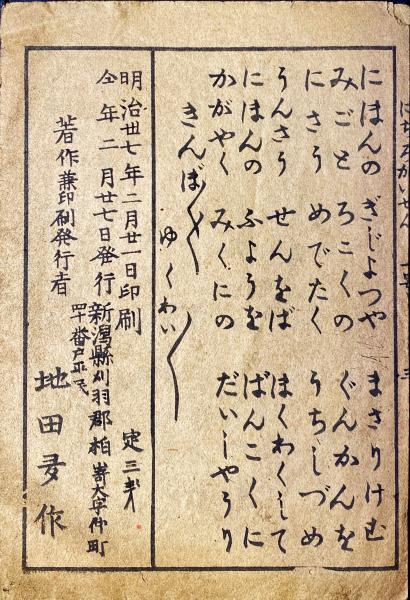 にほんの ぎじよつや まさりけむ
みごと ろこくの ぐんかんを
にさう めでたく うちしづめ
うんさう せんをば ほくわくして
にほんの ふようを ばんこくに
かがやく みくにの だいしやうり
きんぼ〱 ゆくわい〱
明治卅七年二月廿一日印刷 定三銭
仝年二月廿七日発行 新潟縣刈羽郡柏嵜大字仲町
四十番戸平民
著作兼印刷発行者 地田 作